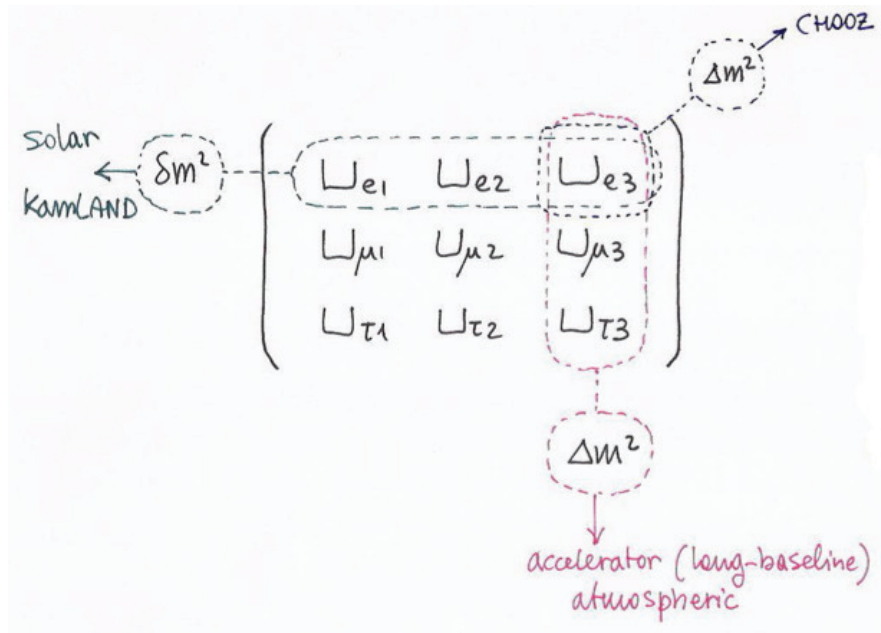 CHOOZ
Δm²
solar
δm²
KamLAND
U_{e1} U_{e2} U_{e3}
U_{μ1} U_{μ2} U_{μ3}
U_{τ1} U_{τ2} U_{τ3}
Δm²
accelerator (long-baseline)
atmospheric